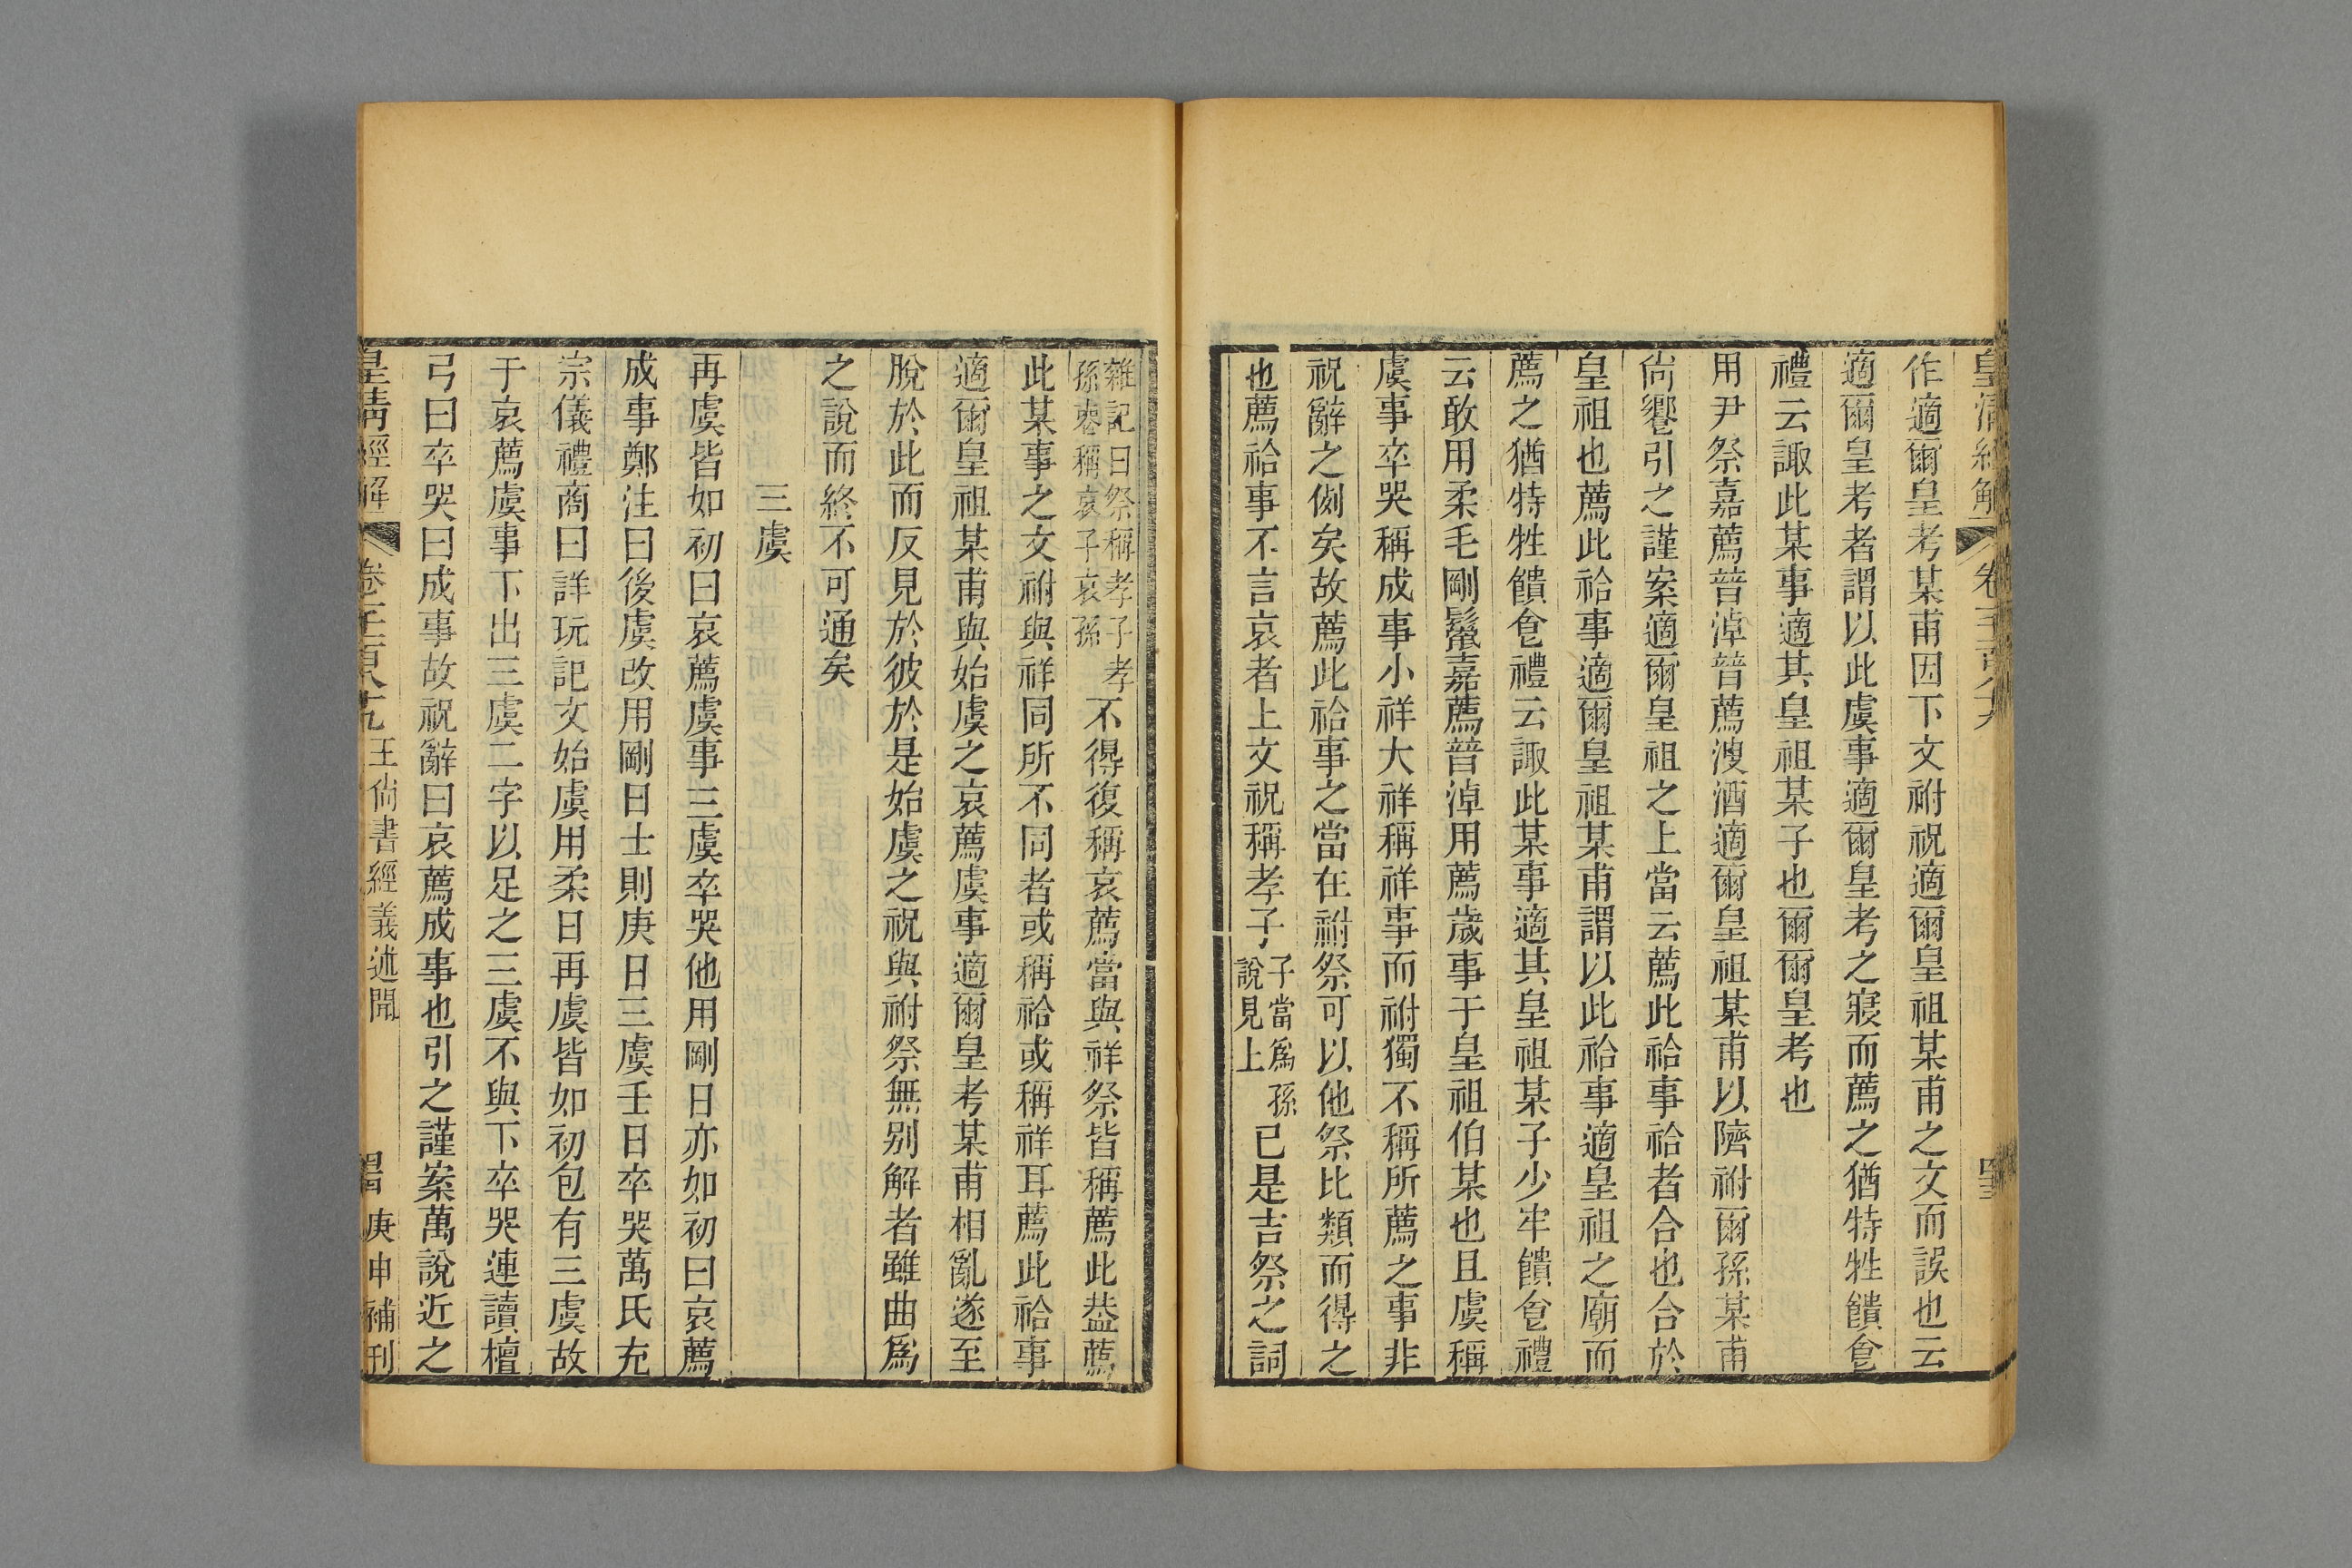 皇清經解
作適爾皇考某甫因下文祔祝適爾皇祖某甫之文而誤也云
適爾皇考者謂以此虞事適爾皇考之寢而薦之猶特牲饋食
禮云諏此某事適其皇祖某子也爾爾皇考也
用尹祭嘉薦普淖普薦溲酒適爾皇祖某甫以隮祔爾孫某甫
尚饗引之謹案適爾皇祖之上當云薦此祫事祫者合也合於
皇祖也薦此祫事適爾皇祖某甫謂以此祫事適皇祖之廟而
薦之猶特牲饋食禮云諏此某事適其皇祖某子少牢饋食禮
云敢用柔毛剛鬣嘉薦普淖用薦歲事于皇祖伯某也且虞稱
虞事卒哭稱成事小祥大祥稱祥事而祔獨不稱所薦之事非
祝辭之例矣故薦此祫事之當在祔祭可以他祭比類而得之
也薦祫事不言哀者上文祝稱孝子子當爲孫說見上已是吉祭之詞
雜記曰祭稱孝子孝孫喪稱哀子哀孫不得復稱哀薦當與祥祭皆稱薦此葢薦
此某事之文祔與祥同所不同者或稱祫或稱祥耳薦此祫事
適爾皇祖某甫與始虞之哀薦虞事適爾皇考某甫相亂遂至
脫於此而反見於彼於是始虞之祝與祔祭無别解者雖曲爲
之說而終不可通矣
三虞
再虞皆如初曰哀薦虞事三虞卒哭他用剛日亦如初曰哀薦
成事鄭注曰後虞改用剛日士則庚日三虞壬日卒哭萬氏充
宗儀禮商曰詳玩記文始虞用柔日再虞皆如初包有三虞故
于哀薦虞事下出三虞二字以足之三虞不與下卒哭連讀檀
弓曰卒哭曰成事故祝辭曰哀薦成事也引之謹案萬說近之
皇清經解 王尚書經義述聞 庚申補刊